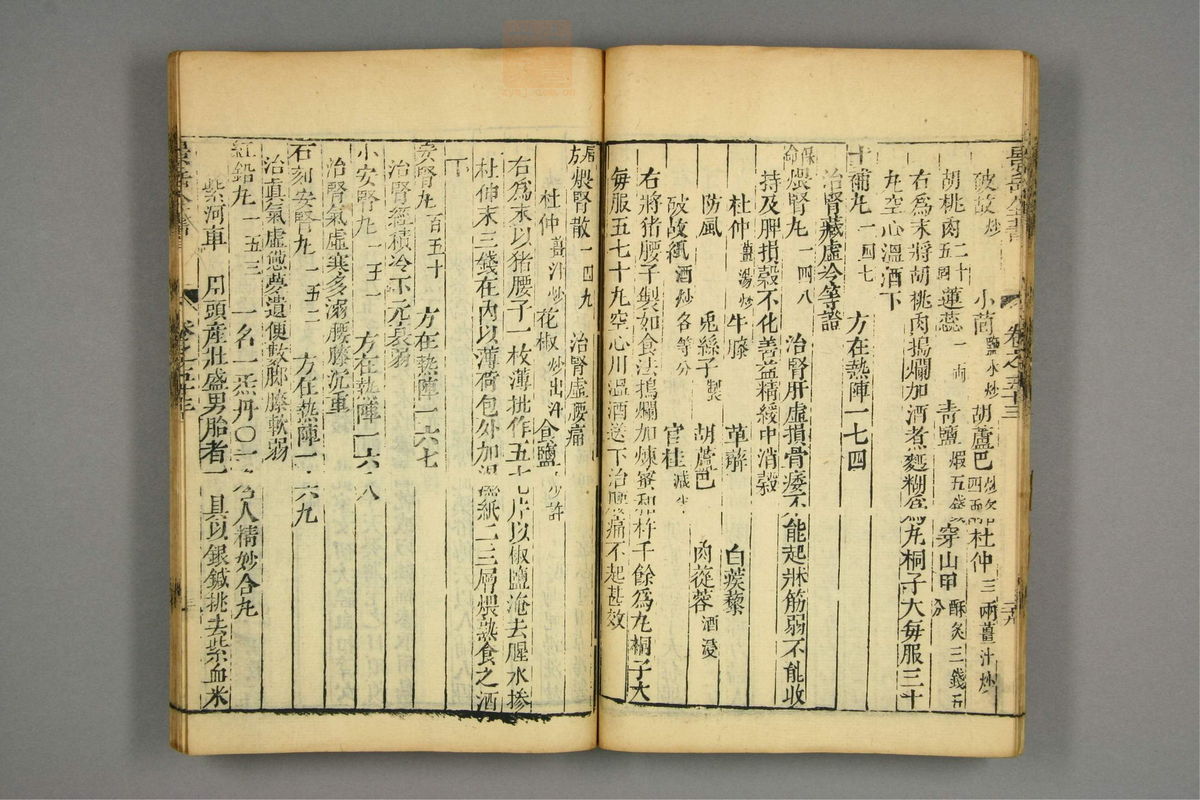 景岳全書 卷之五十三
破故炒 小茴鹽水炒 胡蘆巴 杜仲三兩薑汁炒
胡桃肉二十五個 蓮蕊一兩 青鹽煆五錢 穿山甲酥炙三錢五分
右為末將胡桃肉搗爛加酒煮麪糊為丸桐子大每服三十
丸空心溫酒下
十補丸一四七 方在熱陣一七四
治腎藏虛冷等證
煨腎丸一四八 治腎肝虛損骨痿不能起牀筋弱不能收
持及脾損穀不化善益精緩中消穀
杜仲薑湯炒 牛膝 萆薢 白蒺藜
防風 兎絲子製 胡蘆巴 肉蓯蓉酒浸
破故紙酒炒各等分 官桂減半
右將猪腰子製如食法搗爛加煉蜜和杵千餘為丸桐子大
每服五七十丸空心用溫酒送下治腰痛不起甚效
煨腎散一四九 治腎虛腰痛
杜仲薑汁炒 花椒炒出汗 食鹽少許
右為末以猪腰子一枚薄批作五七片以椒鹽淹去腥水摻
杜仲末三錢在內以薄荷包外加濕紙二三層煨熟食之酒
下
安腎丸百五十 方在熱陣一六七
治腎經積冷下元衰弱
小安腎丸一五一 方在熱陣一六八
治腎氣虛寒多溺腰膝沉重
石刻安腎丸一五二 方在熱陣一六九
治真氣虛憊夢遺便數脚膝軟弱
紅鉛丸一五三 一名一炁丹〇 人精妙合丸
紫河車 用頭產壯盛男胎者一具以銀鍼挑去紫血米
卷之五十三